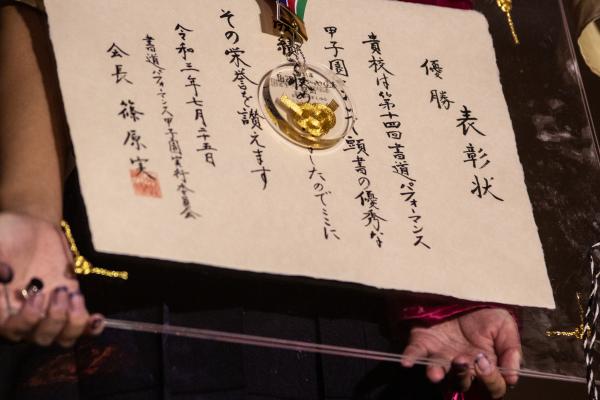 表彰状
優勝
貴校は第十四回書道パフォーマンス
甲子園
顕書の優秀な
したのでここに
その栄誉を讃えます
令和三年七月二十五日
書道パフォーマンス甲子園実行委員会
会長 篠原実